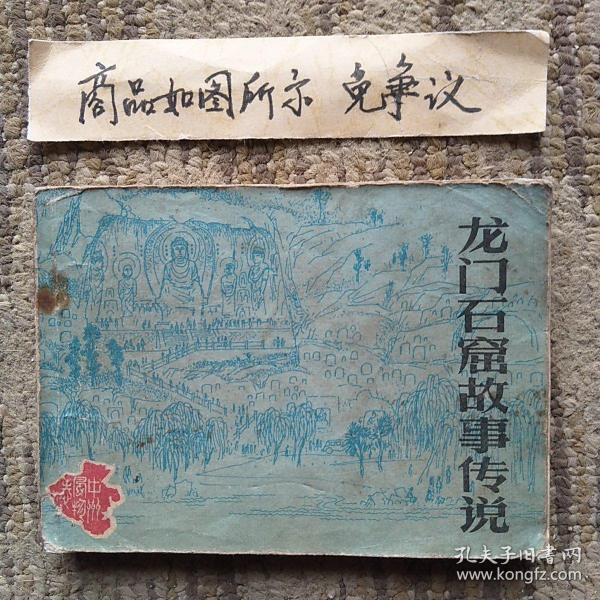 商品如图所示 免争议
龙门石窟故事传说
中州
风物
孔夫子旧书网
www.kongfz.com